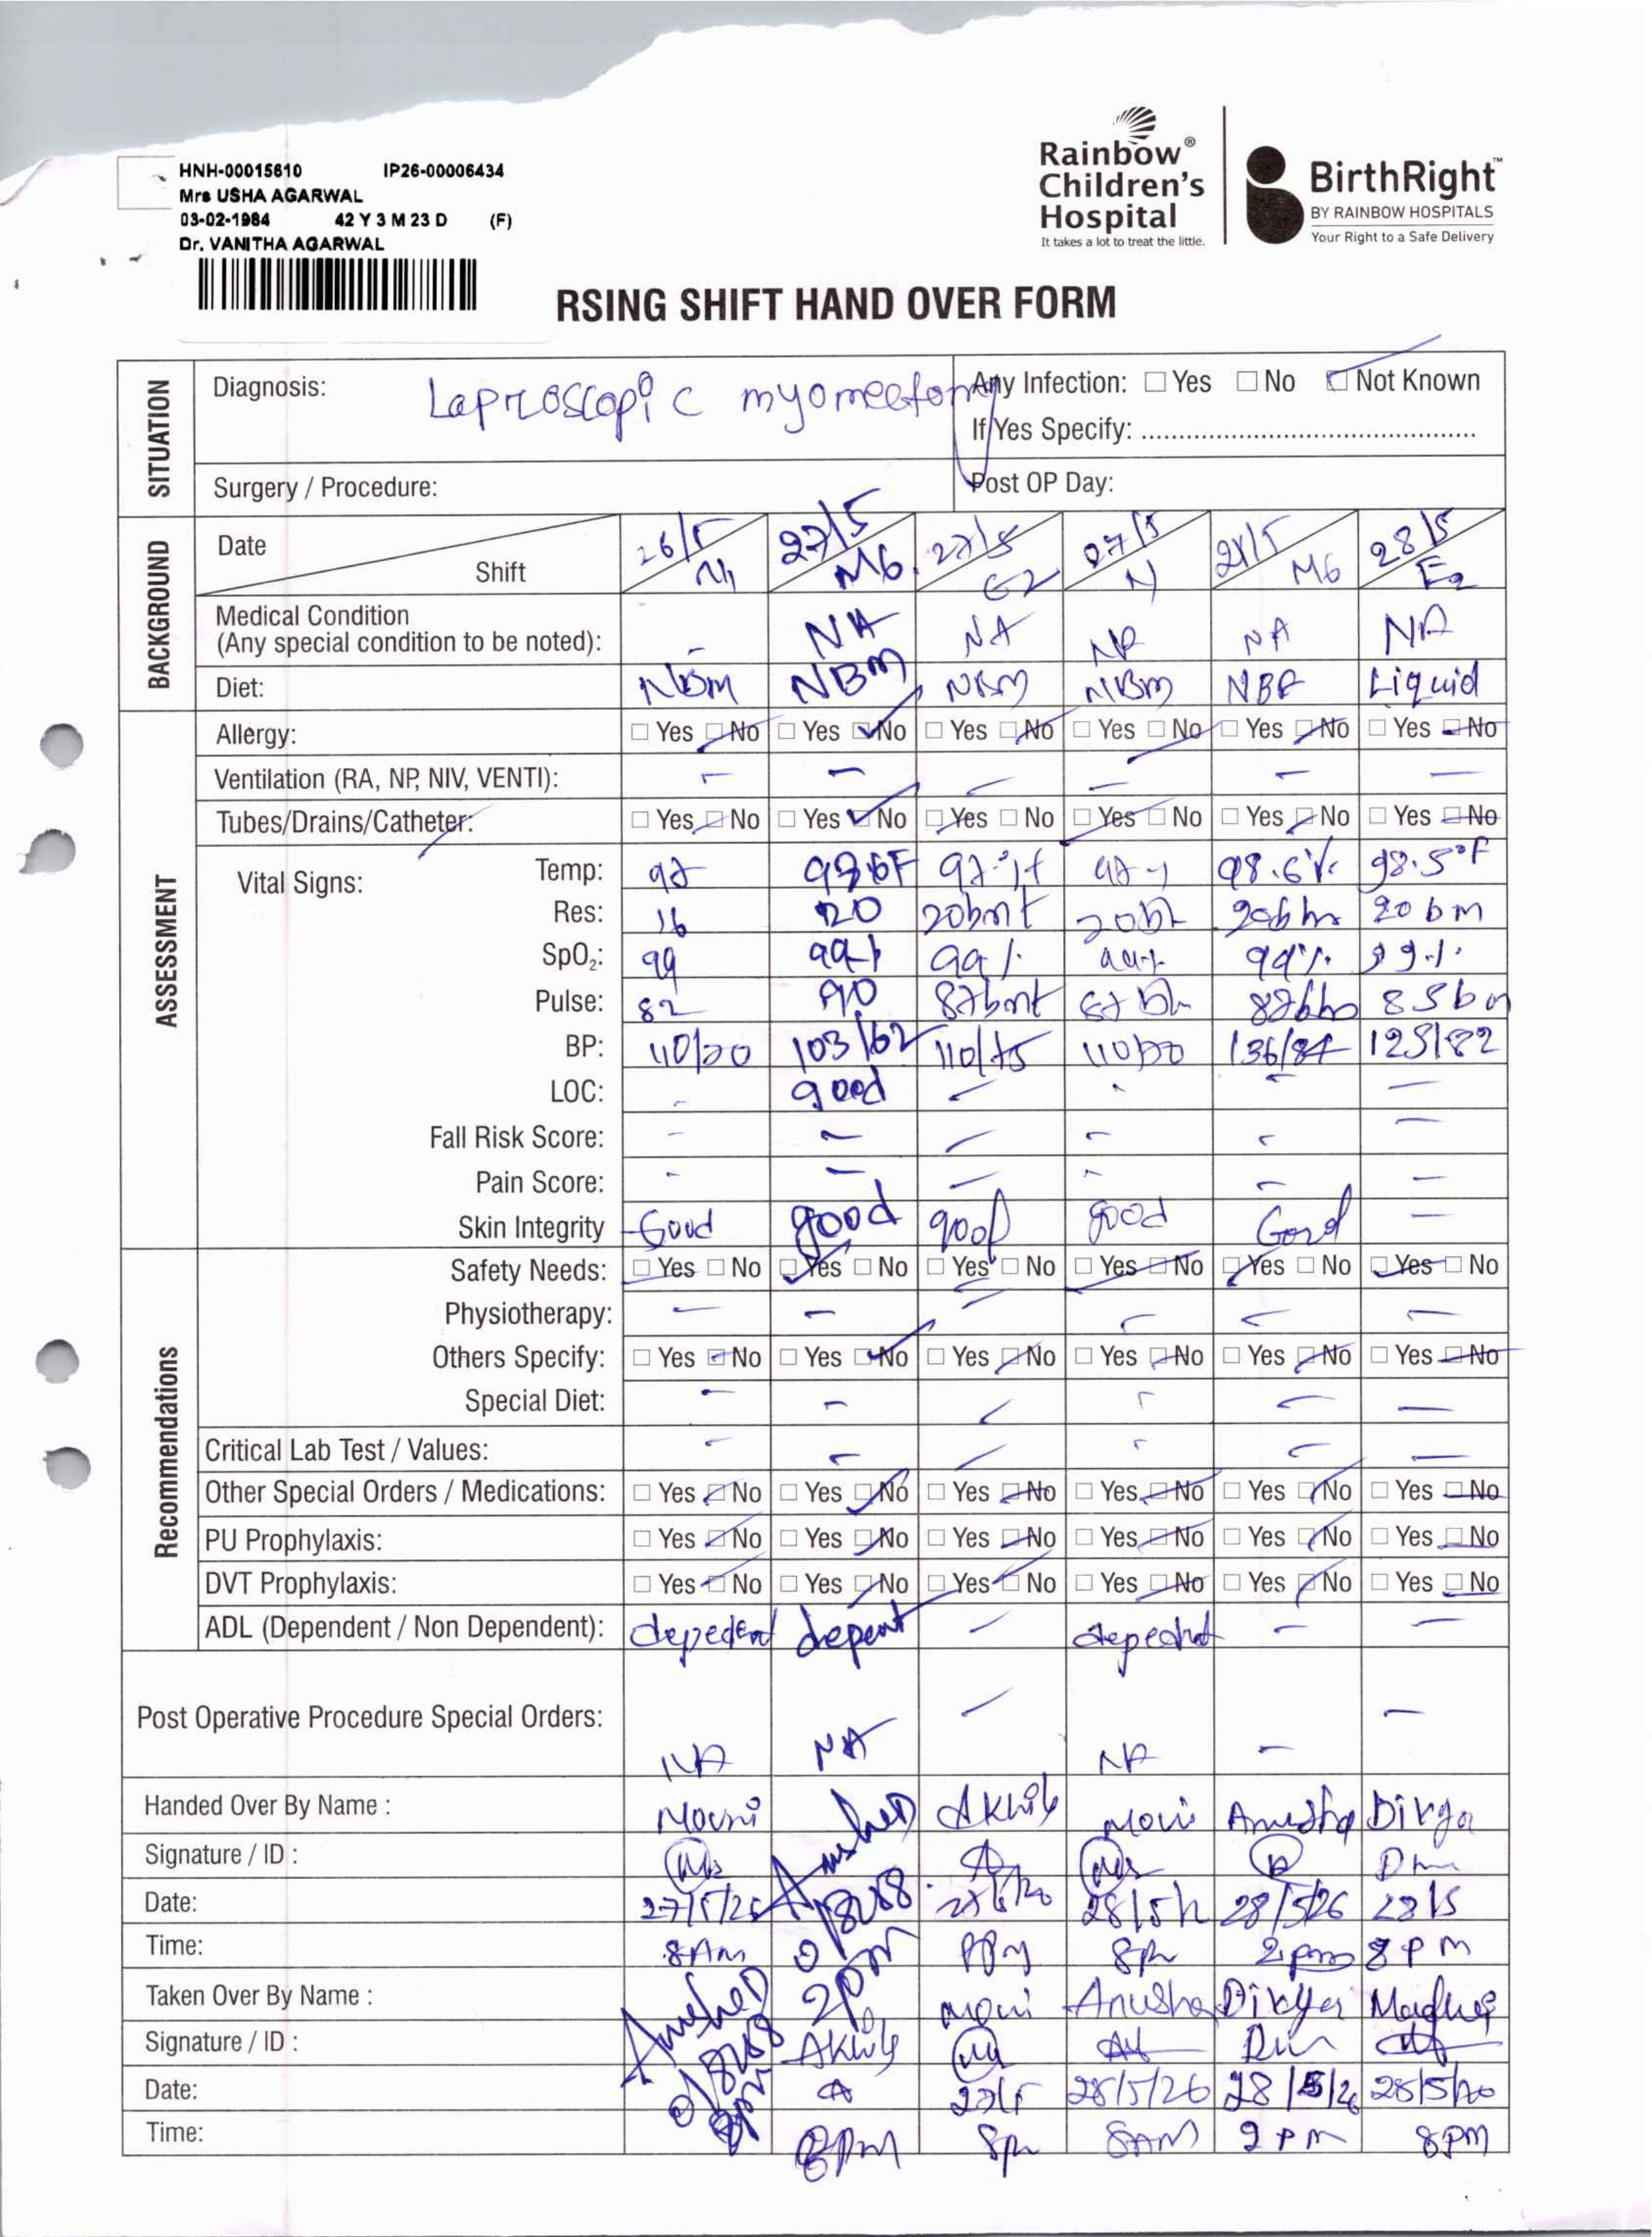 HNH-00015610 IP26-00006434
Mrs USHA AGARWAL
03-02-1984 42 Y 3 M 23 D (F)
Dr. VANITHA AGARWAL
Rainbow® Children's Hospital
It takes a lot to treat the little.
BirthRight™
BY RAINBOW HOSPITALS
Your Right to a Safe Delivery
RSING SHIFT HAND OVER FORM
SITUATION
Diagnosis: Laproscopic myomectomy Any Infection: ☐ Yes ☐ No ☐ Not Known
If Yes Specify:
Surgery / Procedure: Post OP Day:
BACKGROUND
Date 26/5 27/5 27/5 27/5 28/5 28/5
Shift M6 E2 N M6 E2
Medical Condition
(Any special condition to be noted): - NA NA NA NA NA
Diet: NBM NBM NBM NBM Liquid
ASSESSMENT
Allergy: ☐ Yes ☐ No ☐ Yes ☐ No ☐ Yes ☐ No ☐ Yes ☐ No ☐ Yes ☐ No ☐ Yes ☐ No
Ventilation (RA, NP, NIV, VENTI): - - - - - -
Tubes/Drains/Catheter: ☐ Yes ☐ No ☐ Yes ☐ No ☐ Yes ☐ No ☐ Yes ☐ No ☐ Yes ☐ No ☐ Yes ☐ No
Vital Signs: Temp: 98.5°F
Res: 16 20 20bmt 20 bm
SpO₂: 99 99% 99% 99% 99% 99%
Pulse: 82 90 87bmt 85bm
BP: 110/70 103/62 110/75 110/70 136/84
LOC: - good - - - -
Fall Risk Score: - - - - - -
Pain Score: - - - - - -
Skin Integrity Good good good good Good -
Recommendations
Safety Needs: ☐ Yes ☐ No ☐ Yes ☐ No ☐ Yes ☐ No ☐ Yes ☐ No ☐ Yes ☐ No ☐ Yes ☐ No
Physiotherapy: - - - - - -
Others Specify: ☐ Yes ☐ No ☐ Yes ☐ No ☐ Yes ☐ No ☐ Yes ☐ No ☐ Yes ☐ No ☐ Yes ☐ No
Special Diet: - - - - - -
Critical Lab Test / Values: - - - - - -
Other Special Orders / Medications: ☐ Yes ☐ No ☐ Yes ☐ No ☐ Yes ☐ No ☐ Yes ☐ No ☐ Yes ☐ No ☐ Yes ☐ No
PU Prophylaxis: ☐ Yes ☐ No ☐ Yes ☐ No ☐ Yes ☐ No ☐ Yes ☐ No ☐ Yes ☐ No ☐ Yes ☐ No
DVT Prophylaxis: ☐ Yes ☐ No ☐ Yes ☐ No ☐ Yes ☐ No ☐ Yes ☐ No ☐ Yes ☐ No ☐ Yes ☐ No
ADL (Dependent / Non Dependent): depedent depent - depednt - -
Post Operative Procedure Special Orders: NA NA - NA - -
Handed Over By Name : Mouni Akhily Mouni Anusha Divya
Signature / ID :
Date: 27/5/26 28/5/26 28/5
Time: 8AM 2pm 8pm 2pm 8PM
Taken Over By Name : Akhily Mouni Anusha Divya
Signature / ID :
Date: 27/5 28/5/26 28/5/26
Time: 8pm 8pm 8AM 2PM 8pm